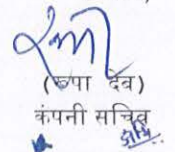 (रूपा देब)
कंपनी सचिव